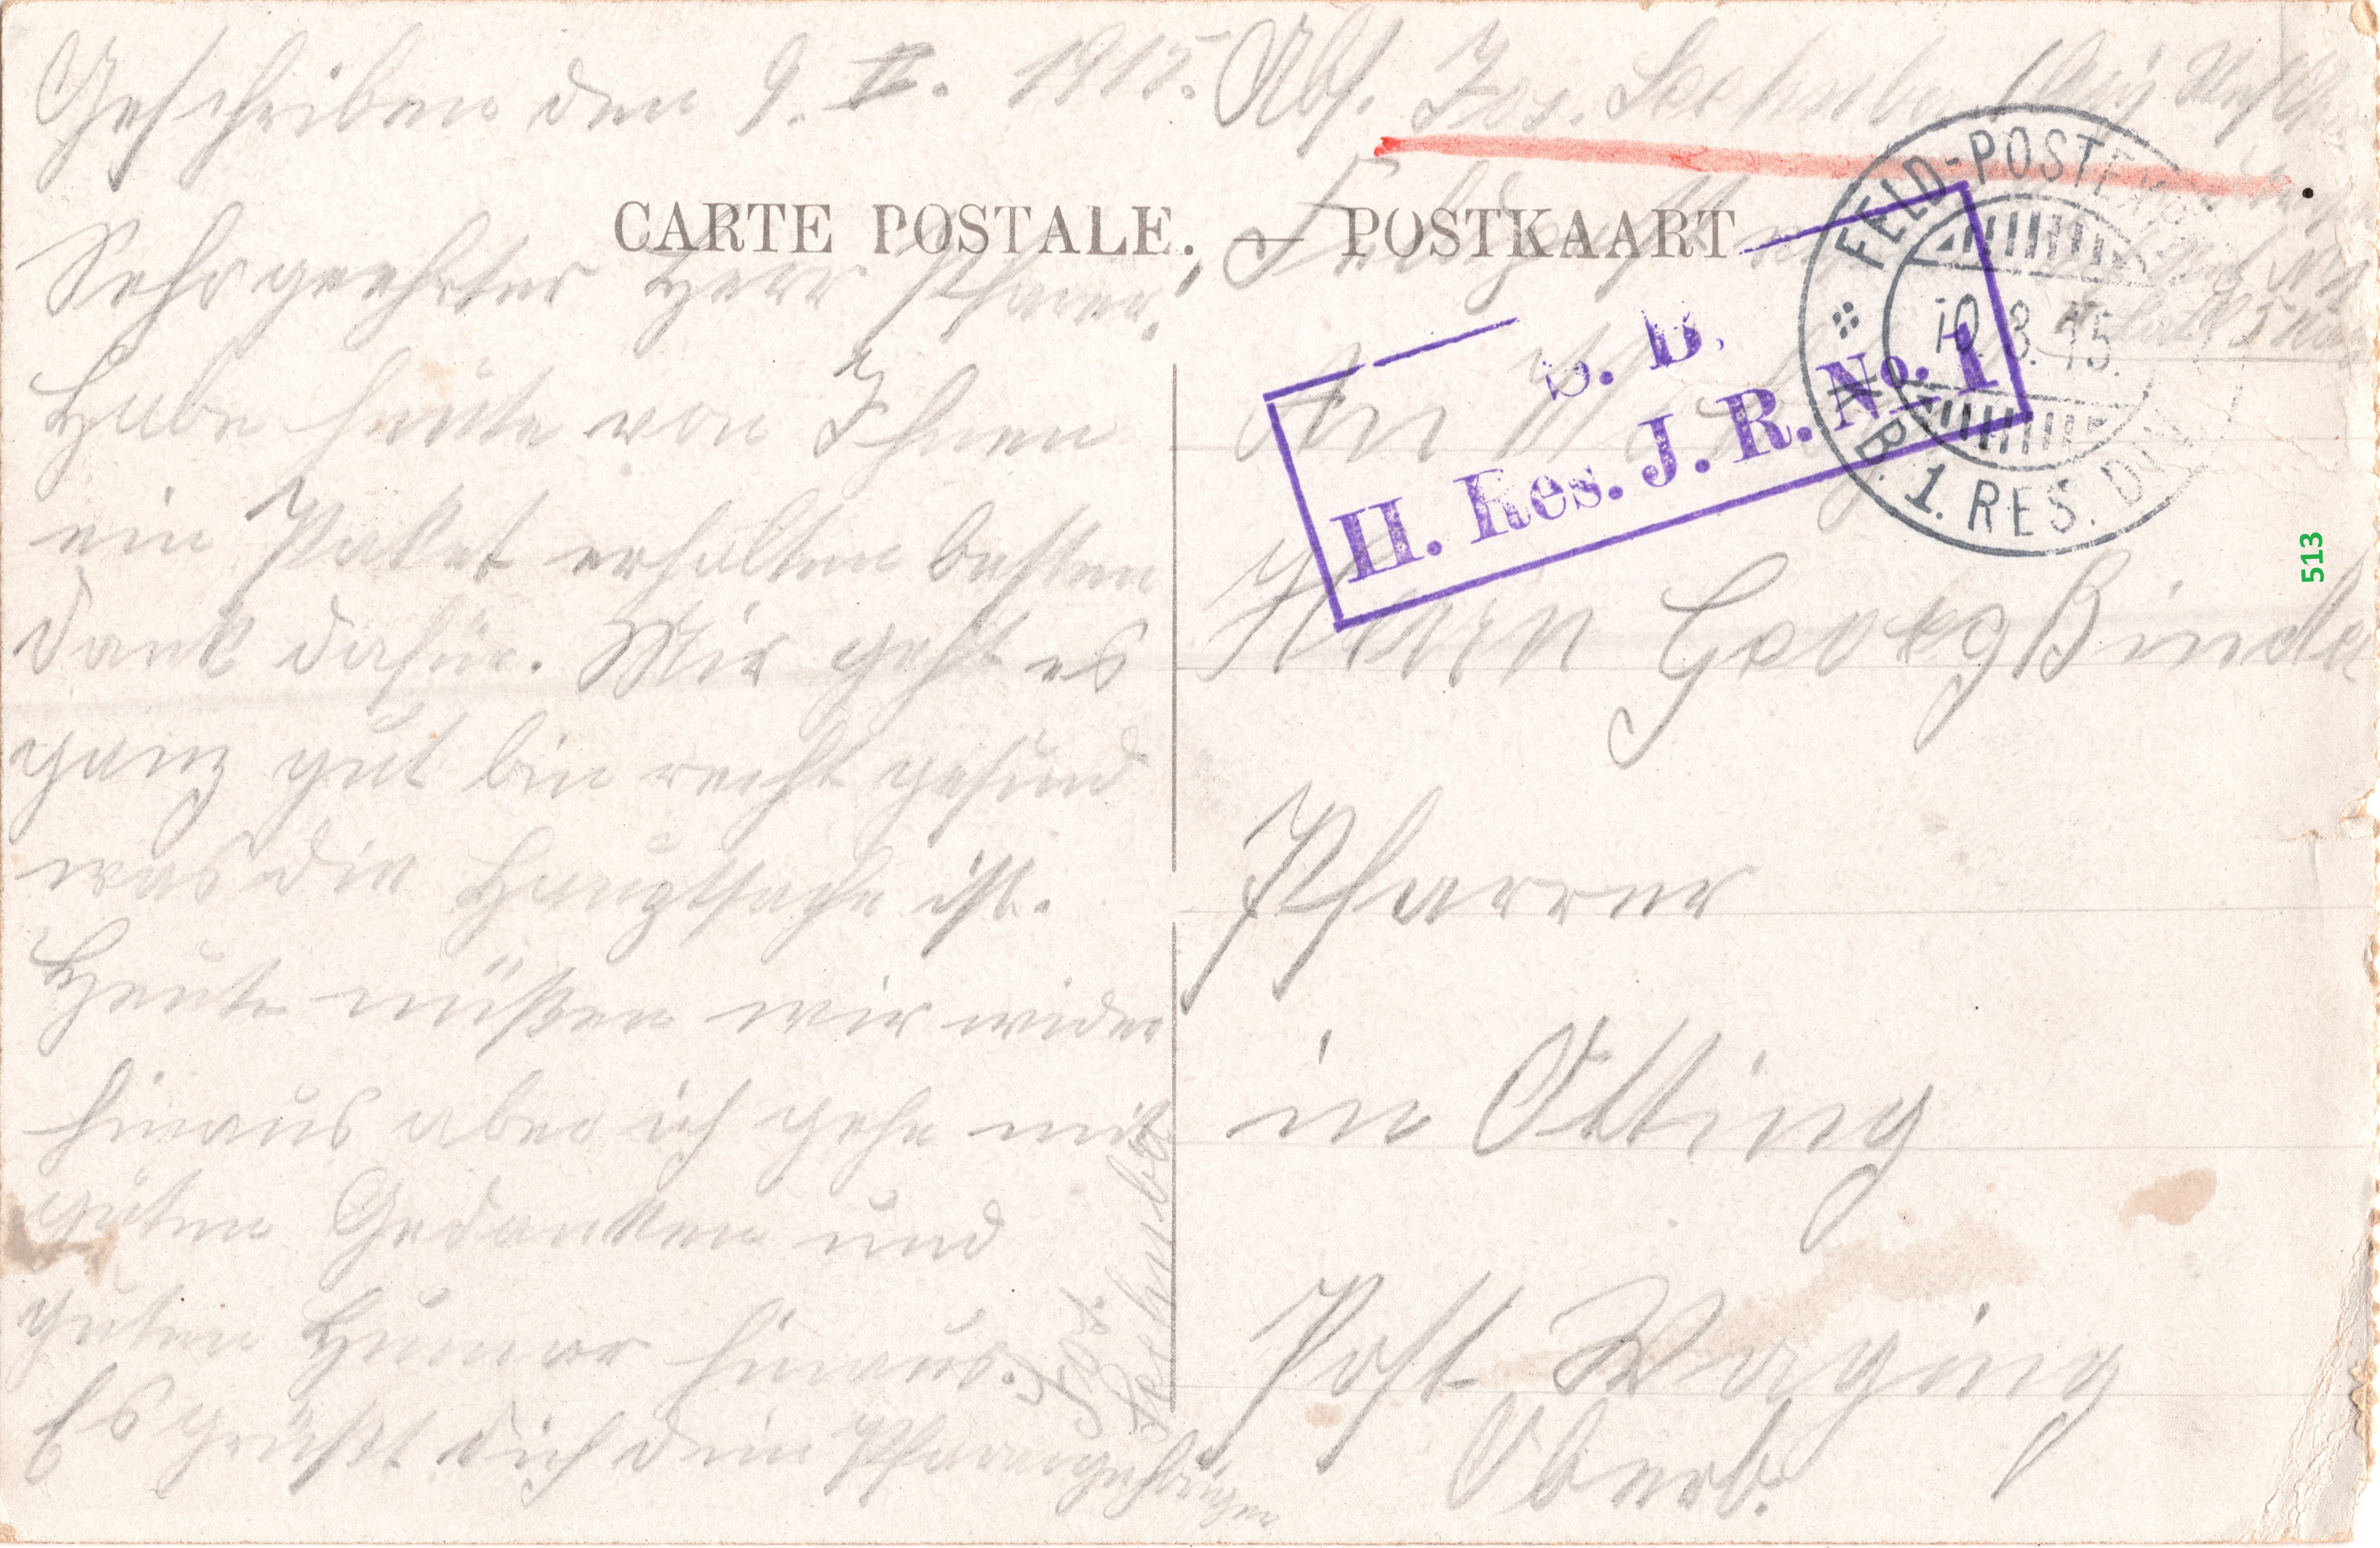 Geschrieben den 9. II. 1915.
Abs. Jos.
CARTE POSTALE. — POSTKAART
Sehr geehrter Herr Pfarrer!
Habe heute von Ihnen
ein Paket erhalten besten
Dank dafür. Mir geht es
ganz gut bin recht gesund
was die Hauptsache ist.
Heute müßen wir wider
hinaus aber ich gehe mit
guten Gedanken und
guten Humor hinaus.
Es grüßt dich dein Pfarrangehörigen
Jos.
S. B.
II. Res. J. R. No. 1
FELD-POSTEXP.
10. 3. 15.
B. 1. RES. DIV.
An
Herrn Georg Binder
Pfarrer
in Otting
Post Waging
Oberb.
513